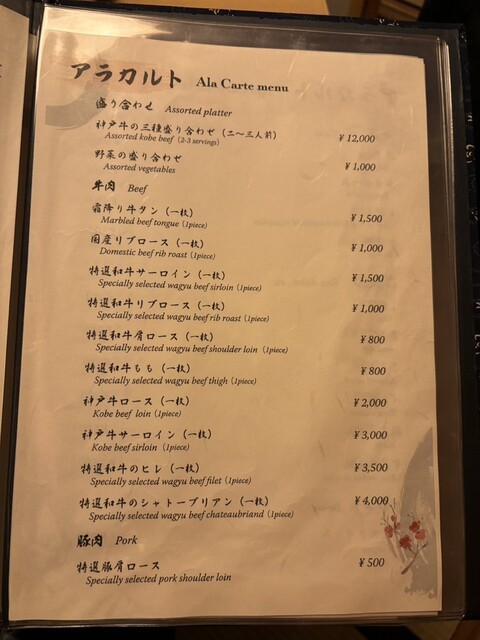 アラカルト Ala Carte menu
盛り合わせ Assorted platter
神戸牛の三種盛り合わせ（二〜三人前） ¥12,000
Assorted kobe beef (2-3 servings)
野菜の盛り合わせ ¥1,000
Assorted vegetables
牛肉 Beef
霜降り牛タン（一枚） ¥1,500
Marbled beef tongue (1piece)
国産リブロース（一枚） ¥1,000
Domestic beef rib roast (1piece)
特選和牛サーロイン（一枚） ¥1,500
Specially selected wagyu beef sirloin (1piece)
特選和牛リブロース（一枚） ¥1,000
Specially selected wagyu beef rib roast (1piece)
特選和牛肩ロース（一枚） ¥800
Specially selected wagyu beef shoulder loin (1piece)
特選和牛もも（一枚） ¥800
Specially selected wagyu beef thigh (1piece)
神戸牛ロース（一枚） ¥2,000
Kobe beef loin (1piece)
神戸牛サーロイン（一枚） ¥3,000
Kobe beef sirloin (1piece)
特選和牛のヒレ（一枚） ¥3,500
Specially selected wagyu beef filet (1piece)
特選和牛のシャトーブリアン（一枚） ¥4,000
Specially selected wagyu beef chateaubriand (1piece)
豚肉 Pork
特選豚肩ロース ¥500
Specially selected pork shoulder loin